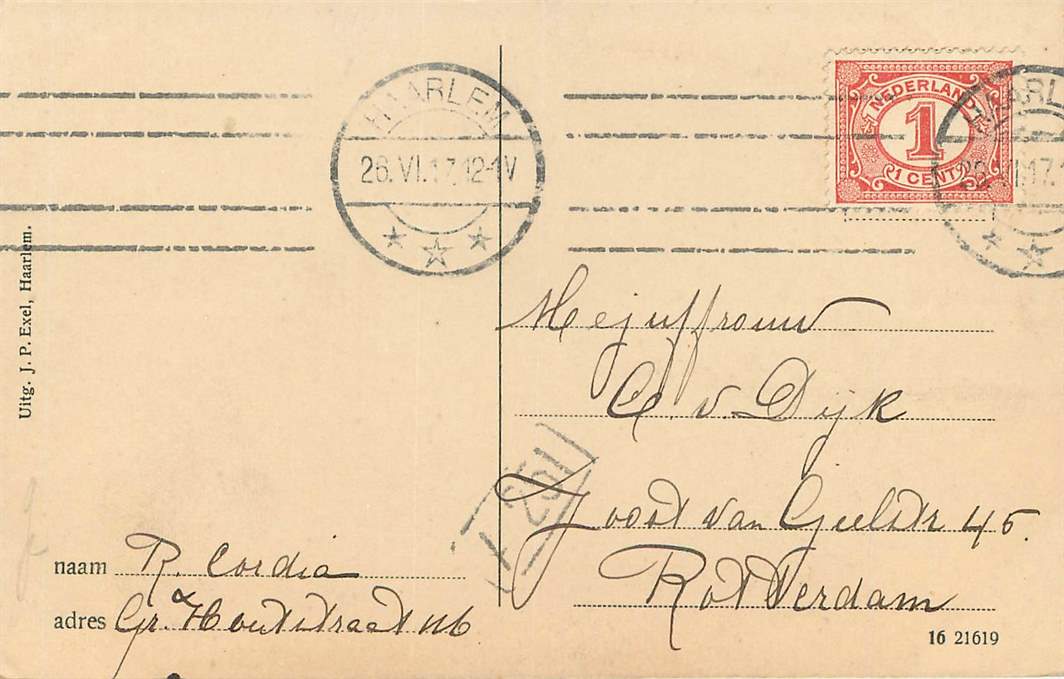 HAARLEM
26.VI.17.12-1V
NEDERLAND
1
1 CENT
HAARL
VI.17.1
Uitg. J. P. Exel, Haarlem.
Mejuffrouw
C. v. Dijk
Joost van Geelstr 45.
Rotterdam
261
naam R. Cordia
adres Gr. Houtstraat 116
16 21619